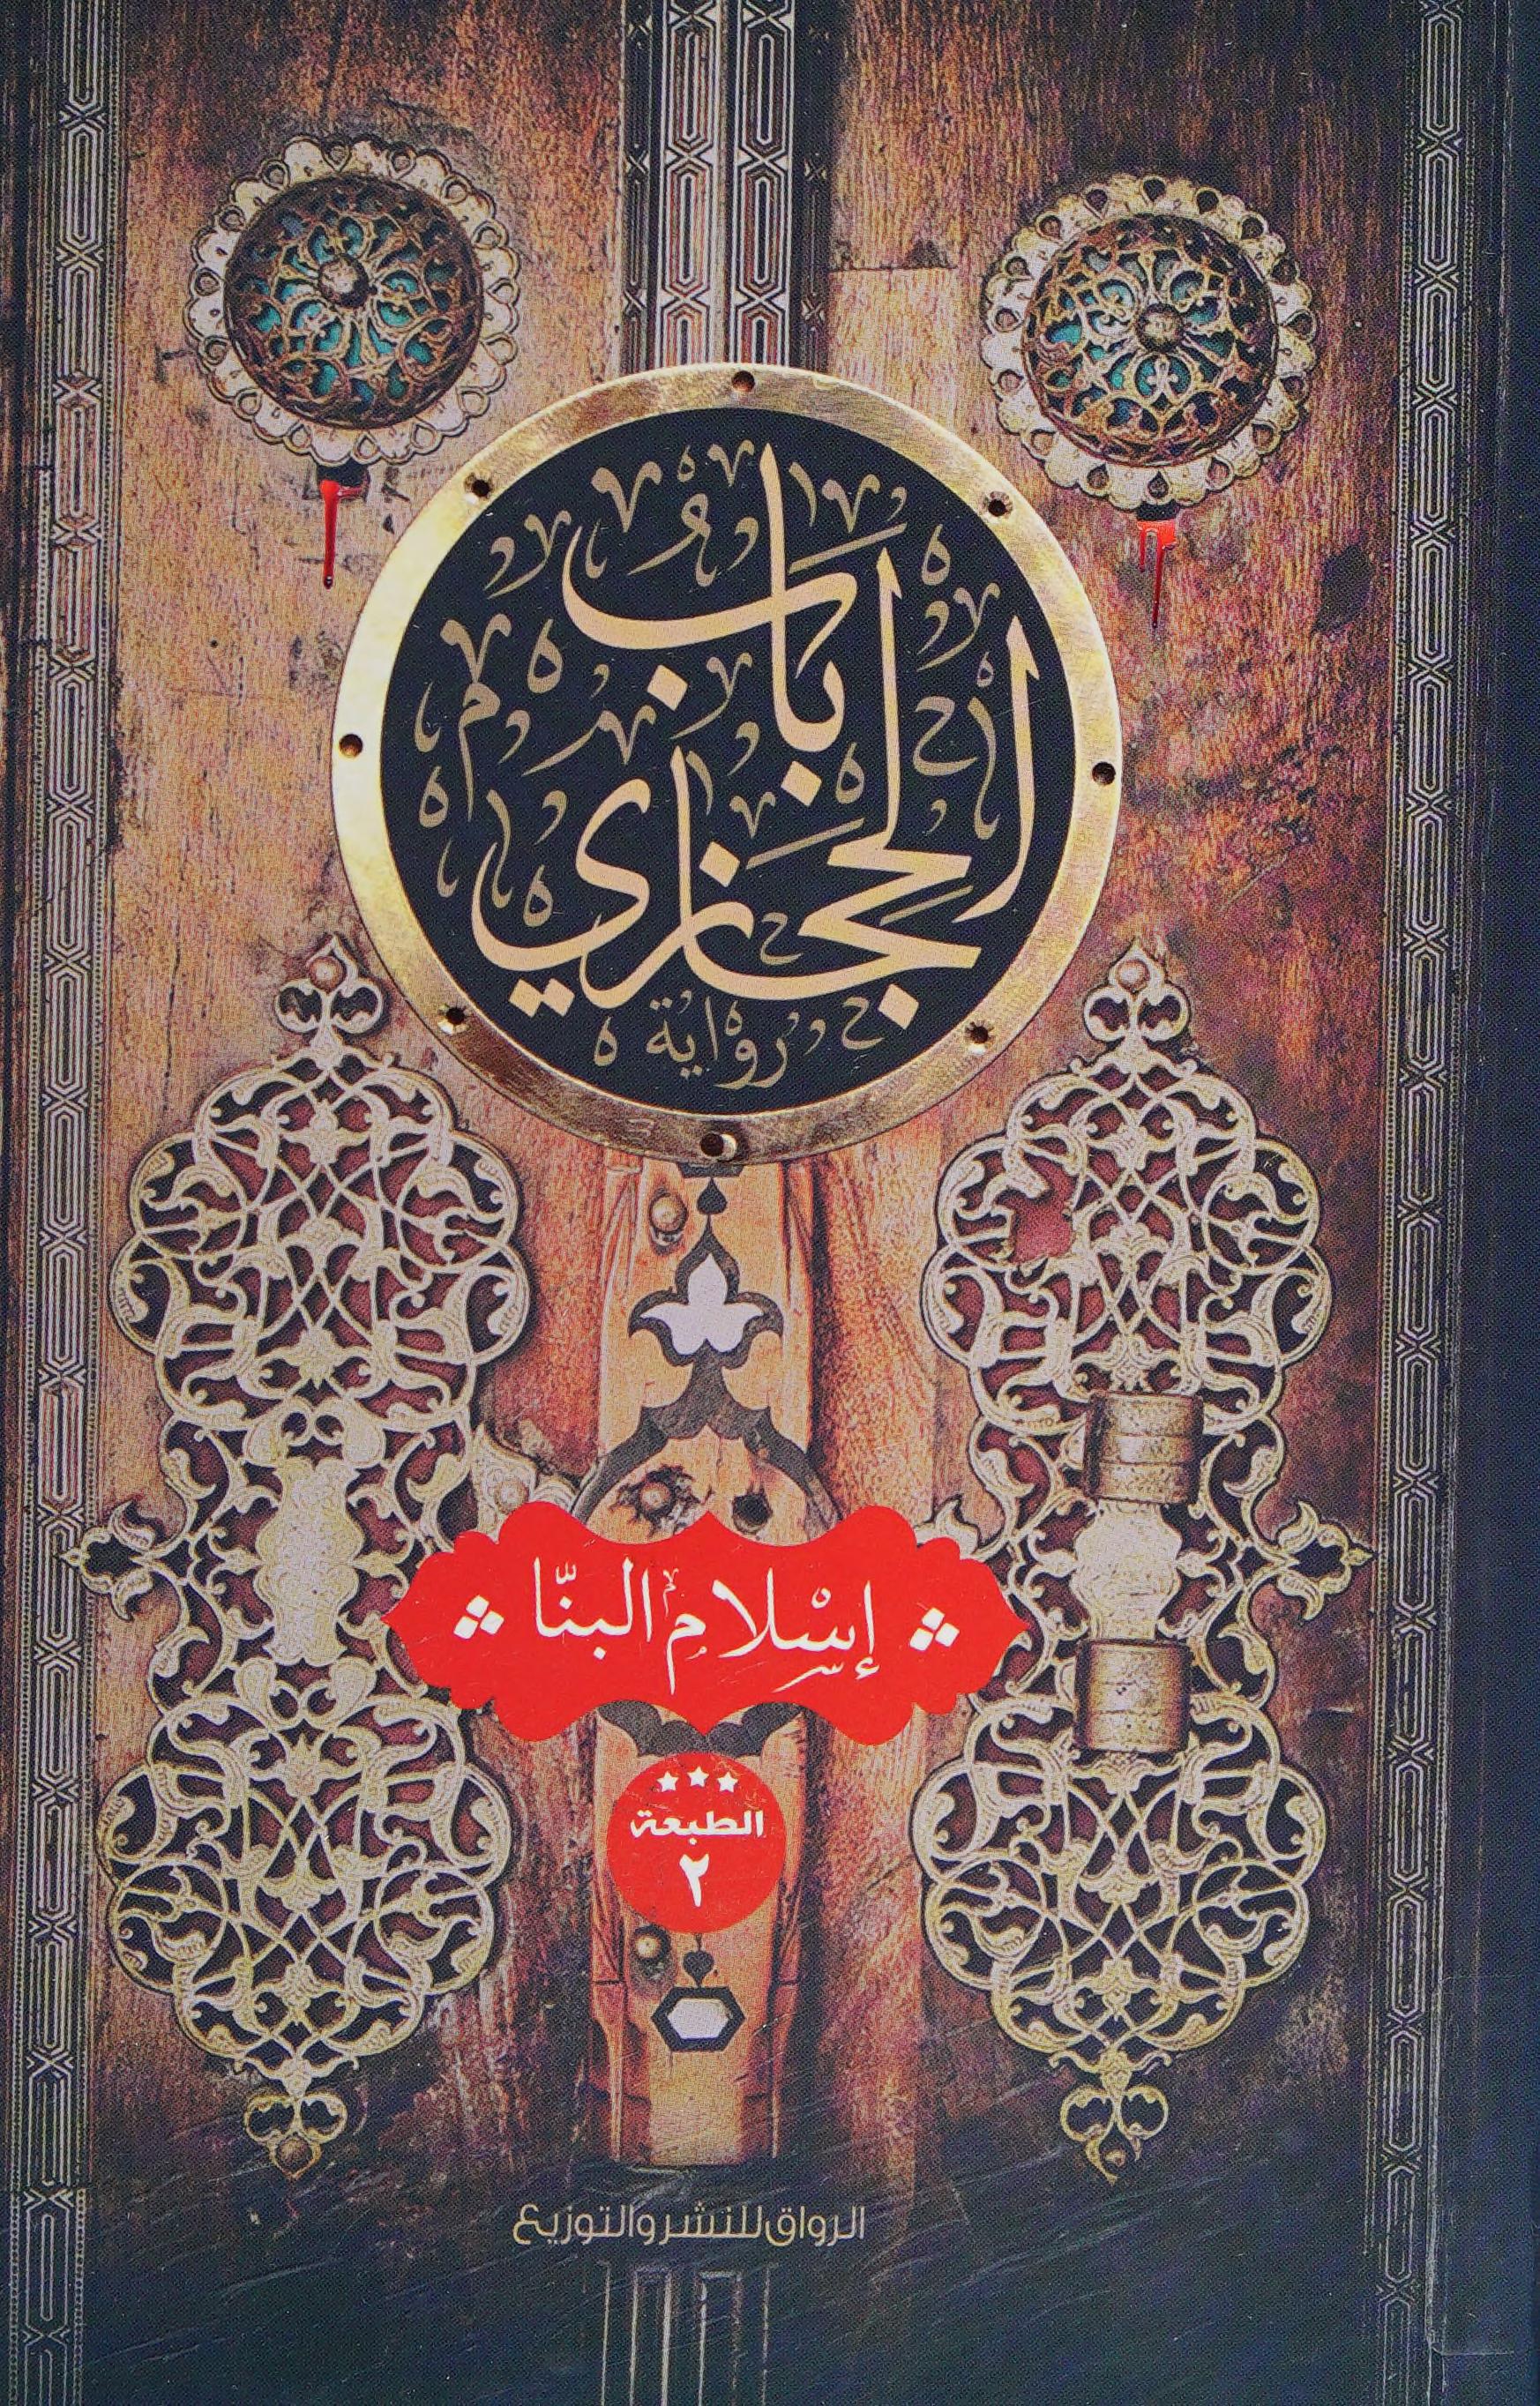 باب
الحجازي
رواية
إسلام البنّا
الطبعة
٢
الرواق للنشر والتوزيع